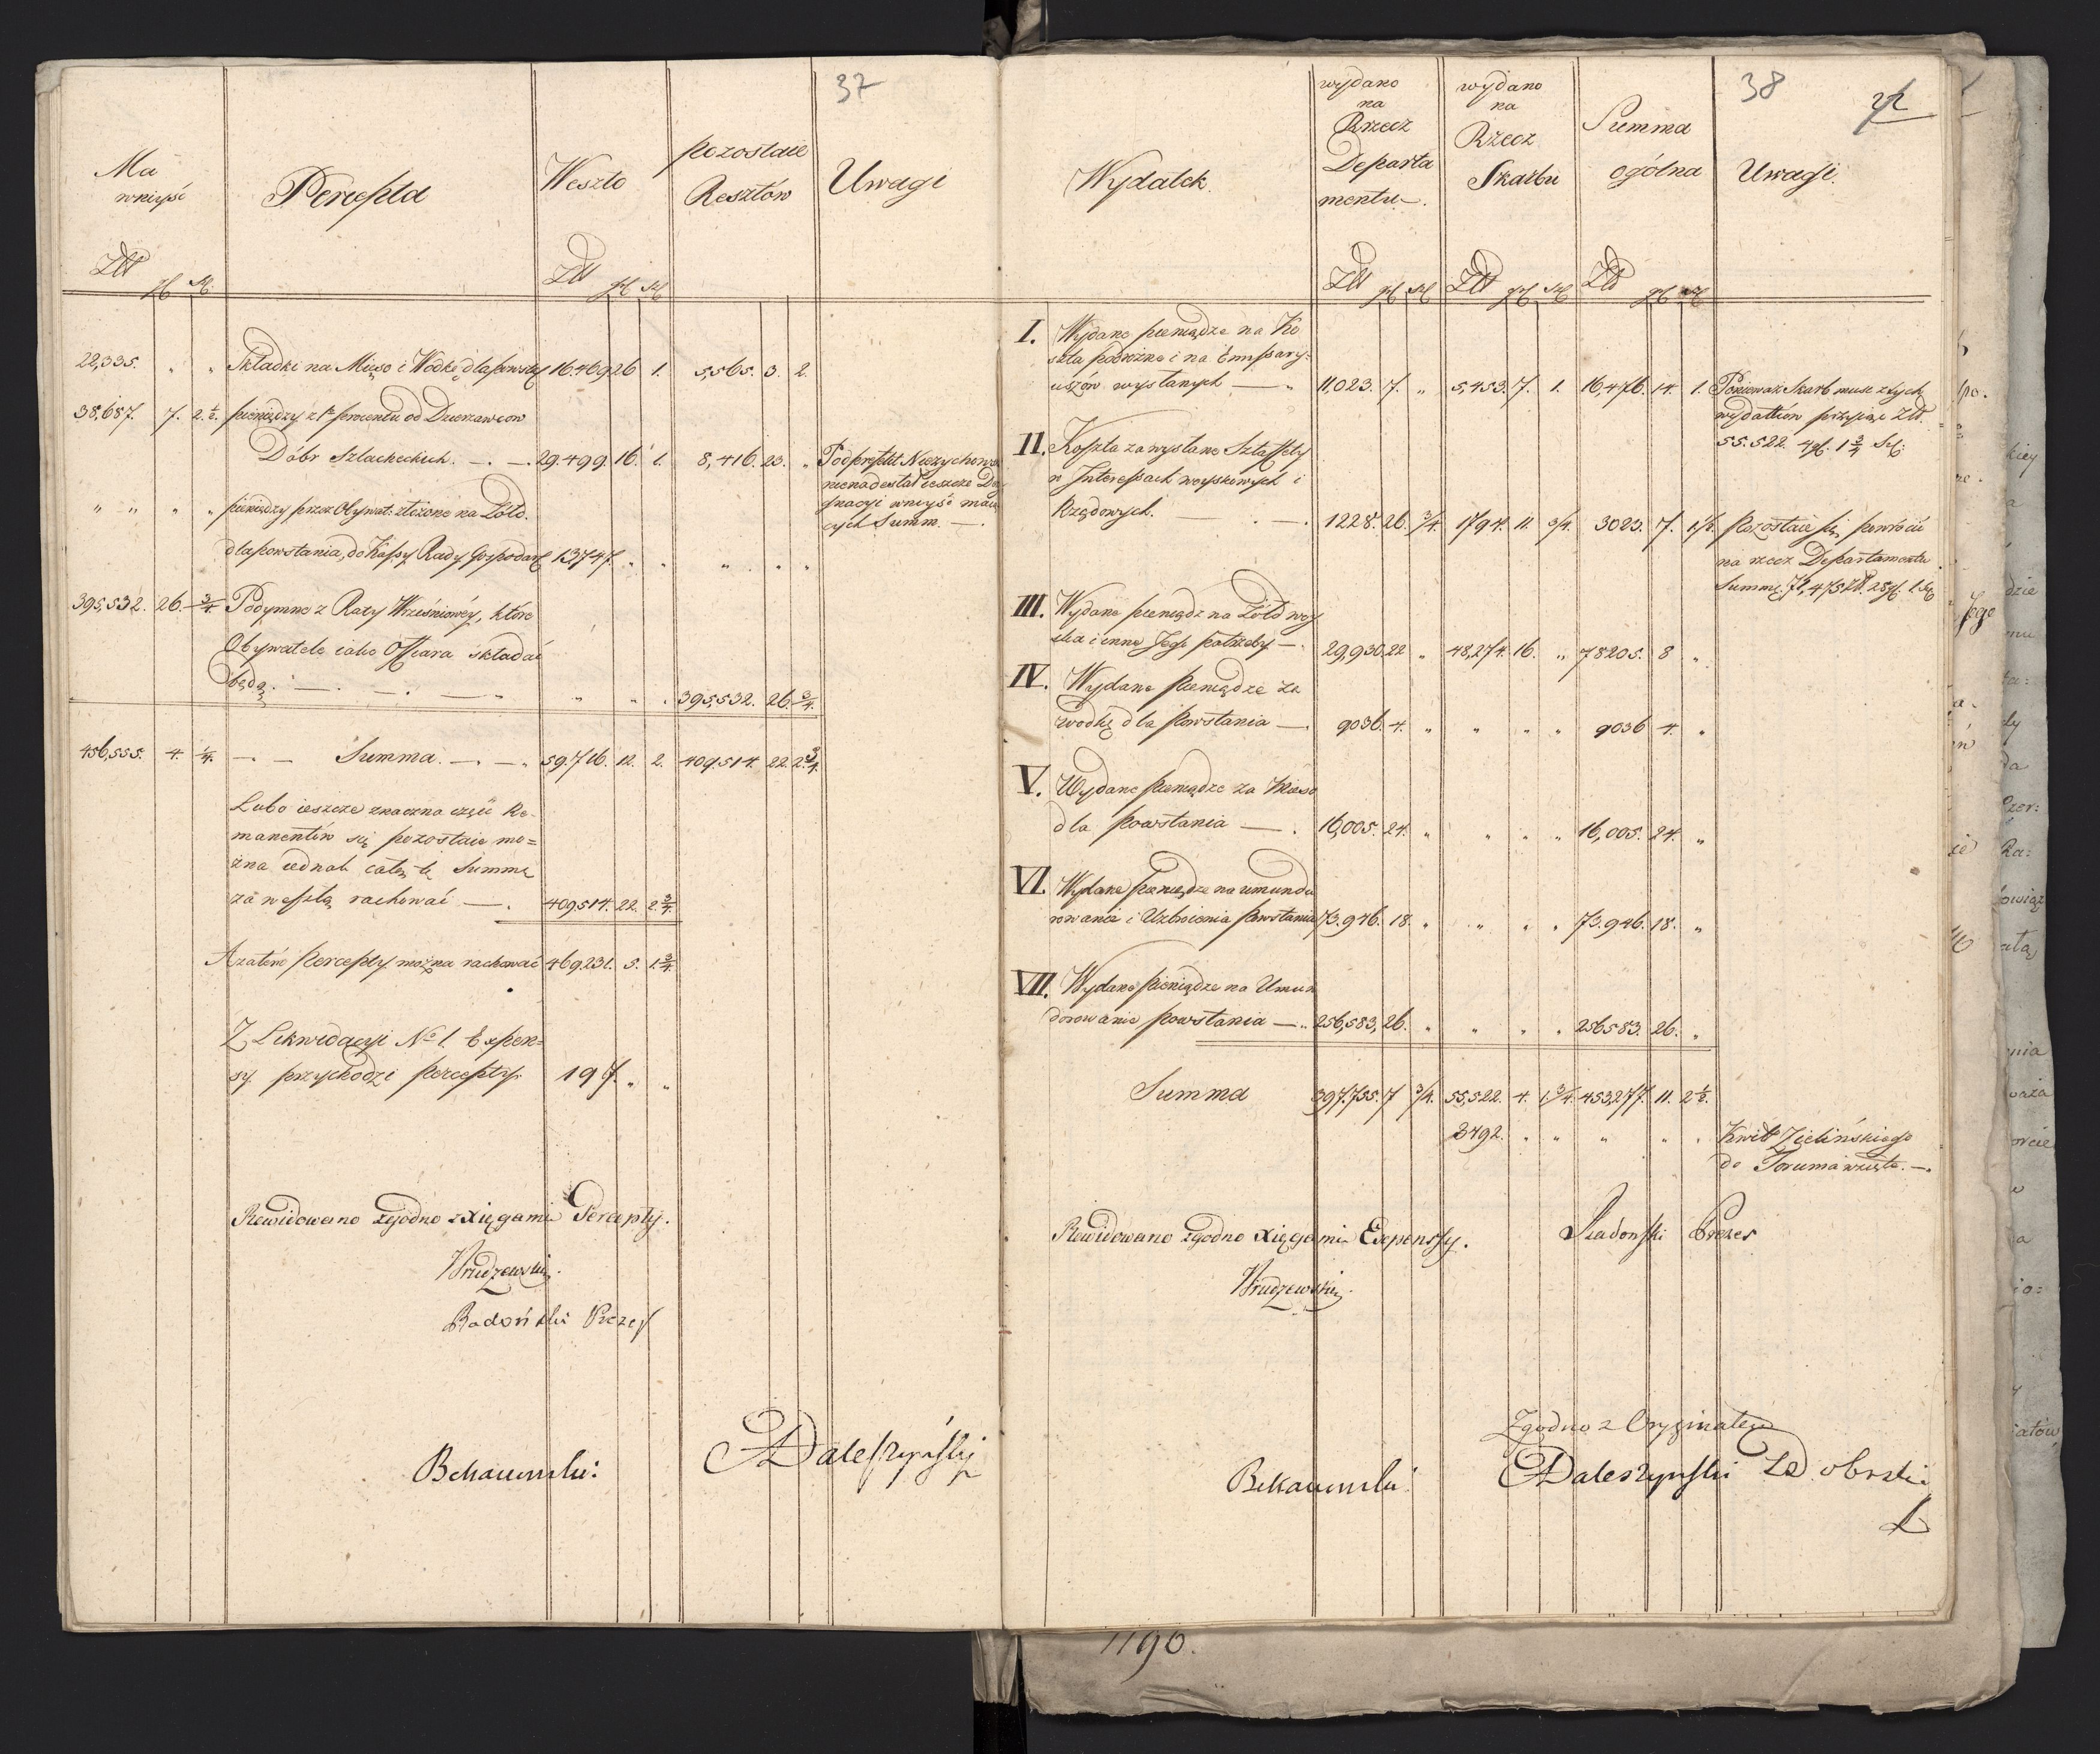 37
Ma
wniyść
Percepta
Weszło
pozostaie
Resztów
Uwagi
Złł gl sl. Złł gl sl
22,335. " " Składki na Mięso i Wodkę dla powsta 16.469 26 1. 5,565. 3. 2.
38,687. 7. 2½. pieniędzy z 1º procentu od Dzierzawcow
Dóbr Szlacheckich. —. —. 29.499. 16. 1. 8,416. 23. " Podprefekt Niezychows
nienadesłał ieszcze De
" " " " pieniędzy przez Obywat: złożone na Żółd. gnacyi wniyść maią
cych Summ. —.
dla powstania, do Kassy Rady Gospodar 13,747. " " " " "
395,532. 26. ¾ Podymne z Raty Wrześniowéy, które
Obywatele iako Offiara składać
będą. —. —. — " " " . 395,532. 26. ¾.
456,555. 4. ¼. —. — Summa. —. —. 59.716. 12. 2. 409,514. 22. 2.¾.
Lubo ieszcze znaczna część Re-
manentów się pozostaie mo=
żna iednak całę tę Summę
za weszłą rachować —. 409,514. 22. 2.¾.
A zatém percepty można rachować 469,231. 5. 1.¾.
Z Likwidacyi No 1. Expen=
sy przychodzi percepty. 197. " "
Rewidowano zgodno z Xięgami Percepty.
Radoński Prezes
Daleszyński
38
Wydatek.
wydano
na
Rzecz
Departa
mentu—.
wydano
na
Rzecz
Skarbu
Summa
ogólna
Uwagi.
Złł gl sl Złł gl sl Złł gl sl
I. Wydane pieniądze na Ko
szta podróżne i na Emissary=
uszów wysłanych — " 11,023. 7. " 5,453. 7. 1. 16,476. 14. 1. Ponieważ Skarb musi z tych
wydatków przyiąć Złł.
55.522. 4 gl. 1¾ Sl:
II. Koszta za wysłane Sztaffety
w Interessach woyskowych i
Rządowych. — . —. 1228. 26. ¾. 1794. 11. ¾. 3023. 7. 1½. pozostaie się powrócić
na rzecz Departamentu
Summę 72,475 złł. 25 gl. 1. sl.
III. Wydane pieniądz na Żółd woy
ska i inne Jego potrzeby —. 29,930. 22 " 48,274. 16. " 78205. 8 "
IV. Wydane pieniądze za
wodkę dla powstania —. 9036. 4. " " " " 9036 4. "
V. Wydane pieniądze za Mięso
dla powstania —. 16,005. 24. " " " " 16,005. 24. "
VI. Wydane pieniądze na umundu
rowanie i Uzbroienia powstania 73.946. 18. " " " " 73.946. 18. "
VII. Wydane pieniądze na Umun
dorowanie powstania —" 256,583, 26. " " " " 256583. 26. "
Summa 397.755. 7 ¾. 55,522. 4. 1.¾. 453,277. 11. 2½.
3492. " " " " . Kwitt Zielińskiego
do Torunia wzięte. —.
Rewidowano zgodno Xięgami Expenssy. Radonski Prezes
Zgodno z Oryginałem
Daleszynski
1190.